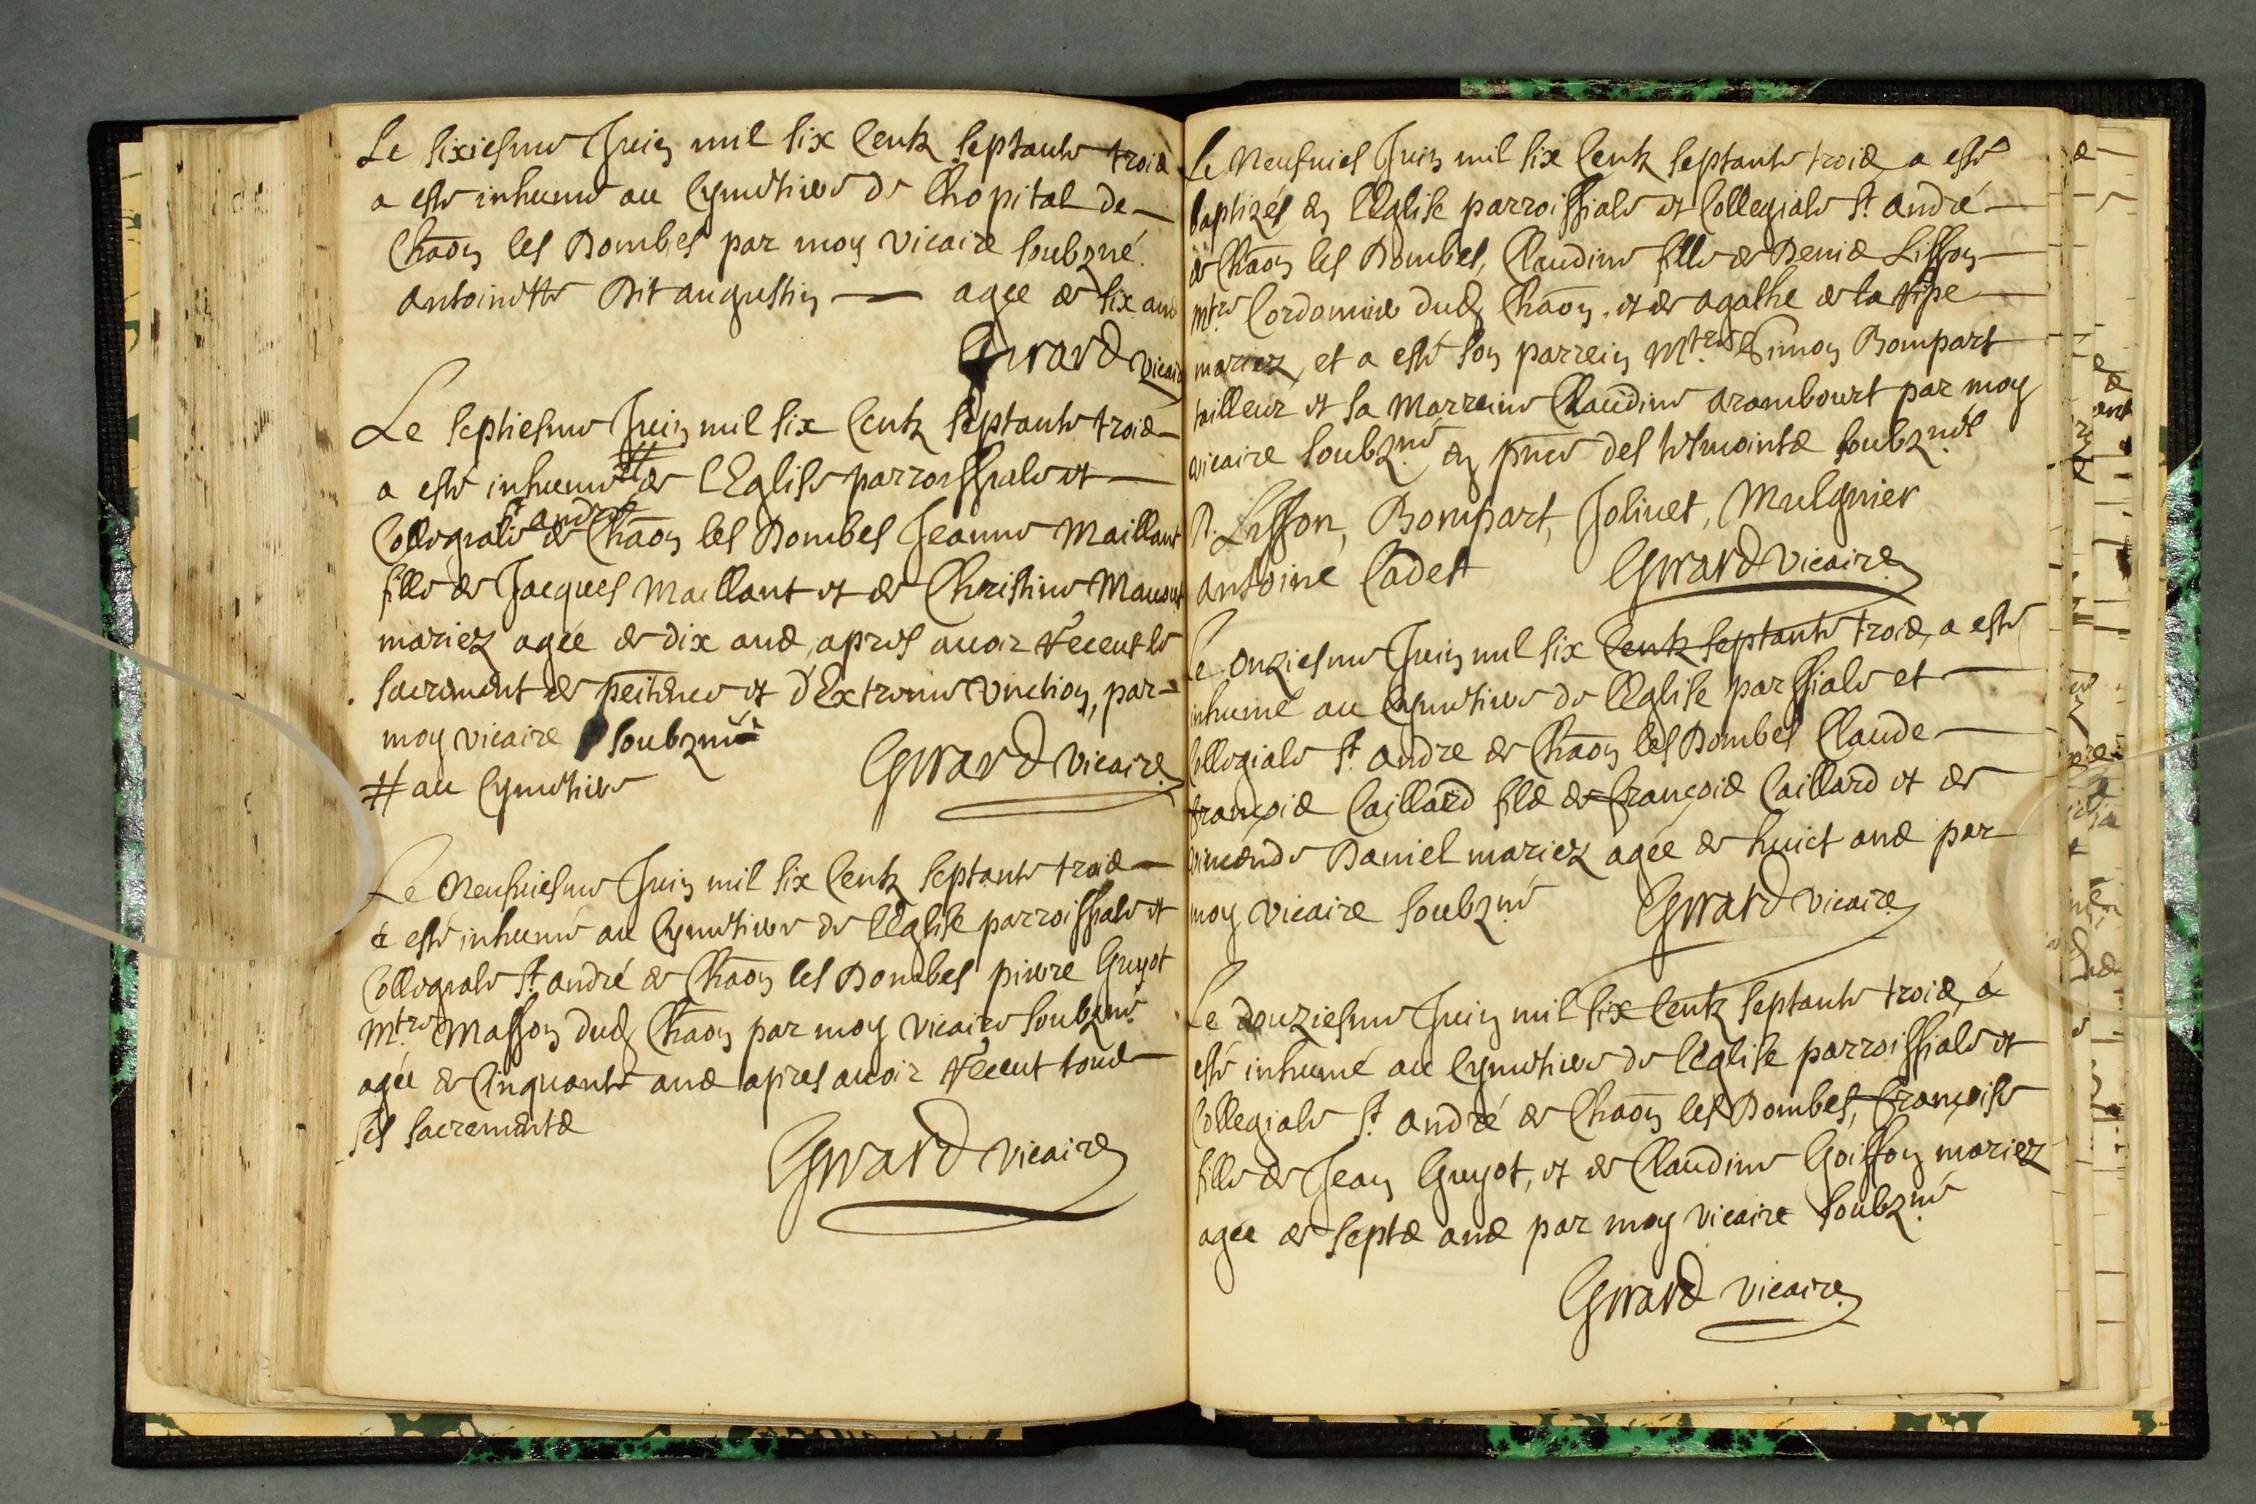 Le sixiesme Juin mil six Centz septante trois
a esté inhumé au Cymetiere de Lhopital de
Chãon les Dombes par moy vicaire soubzné.
antoinette Dit augustin agée de six ans
Girard vicaire
Le septiesme Juin mil six Centz septante trois
a esté inhumé # de l'Eglise parroissiale et
Collegiale St andré de Chãon les Dombes Jeanne Maillant
fille de Jacques Maillant et de Christine
mariez agée de dix ans, apres avoir Receut le
sacrement de peitence et d'Extreme Unction, par
moy vicaire soubzné
Girard vicaire
# au Cymetiere
Le Neufviesme Juin mil six Centz septante trois
a esté inhumé au Cymetiere de l'Eglise parroissiale et
Collegiale St. andré de Chãon les Dombes pierre Guyot
Mtre Masson dud Chãon par moy vicaire soubzné
agée de Cinquante ans apres avoir Receut tous
ses sacrements
Girard vicaire
Le Neufvies Juin mil six Centz septante trois a esté
baptizés en l'Eglise parroissiale et Collegiale St. andré
de Chãon les Dombes, Claudine fille de Denis Lisson
mtre Cordonnier dud Chãon, et de agathe de la Ripe
mariez, et a esté son parrein Mtre Simon Bompart
tailleur et sa Marreine Claudine arambourt par moy
vicaire soubzné en pnce des tesmoints soubznés
D. Lisson, Bompart, Jolivet, Mulgnier
antoine Cadet Girard vicaire
Le onziesme Juin mil six Centz septante trois, a esté
inhumé au Cymetiere de l'Eglise parssiale et
Collegiale St. andre de Chãon les Dombes Claude
françois Caillard fils de françois Caillard et de
Daniel mariez agée de huict ans par
moy vicaire soubzné Girard vicaire
Le douziesme Juin mil six Centz septante trois, a
esté inhumé au Cymetiere de l'Eglise parroissiale et
Collegiale St. andré de Chãon les Dombes, françoise
fille de Jean Guyot, et de Claudine Goiffon mariez
agée de septs ans par moy vicaire soubzné
Girard vicaire